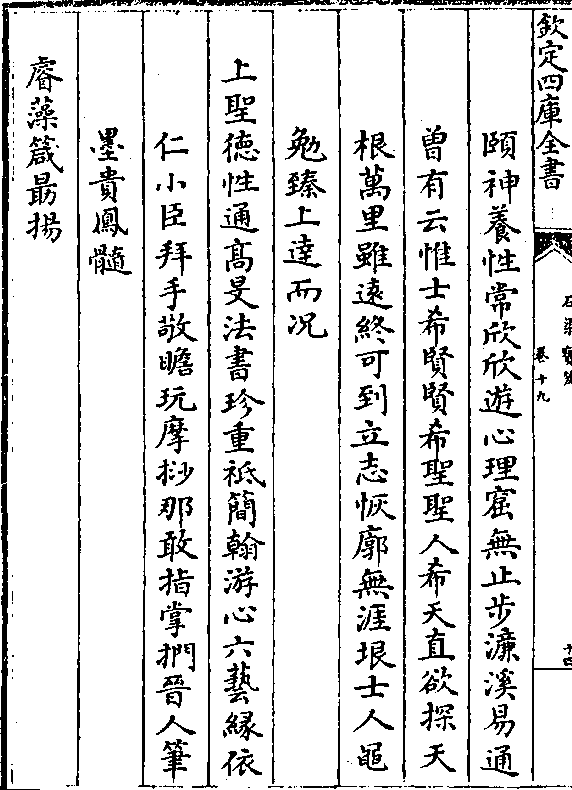 欽定四庫全書
卷十九
十四
頤神養性常欣欣遊心理窟無止步濂溪易通
曽有云惟士希賢賢希聖聖人希天直欲探天
根萬里雖逺終可到立志恢廓無涯垠士人黽
勉臻上達而况
上聖徳性通髙旻法書珍重祗簡翰游心六藝縁依
仁小臣拜手敬瞻玩摩挱那敢指掌捫晉人筆
墨貴鳳髓
睿藻箴最揚